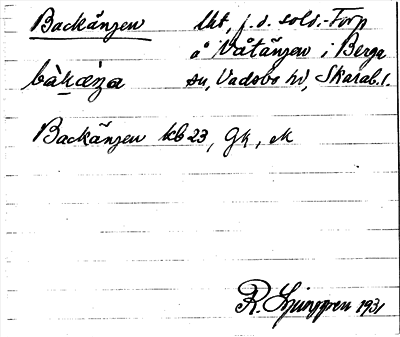 Backängen lht, f. d. sold.-Torp
å Våtängen i Berga
bàkæŋa sn, Vadsbo hd, Skarab. l.
Backängen kb 23, Gk, M
R. Ljunggren 1931